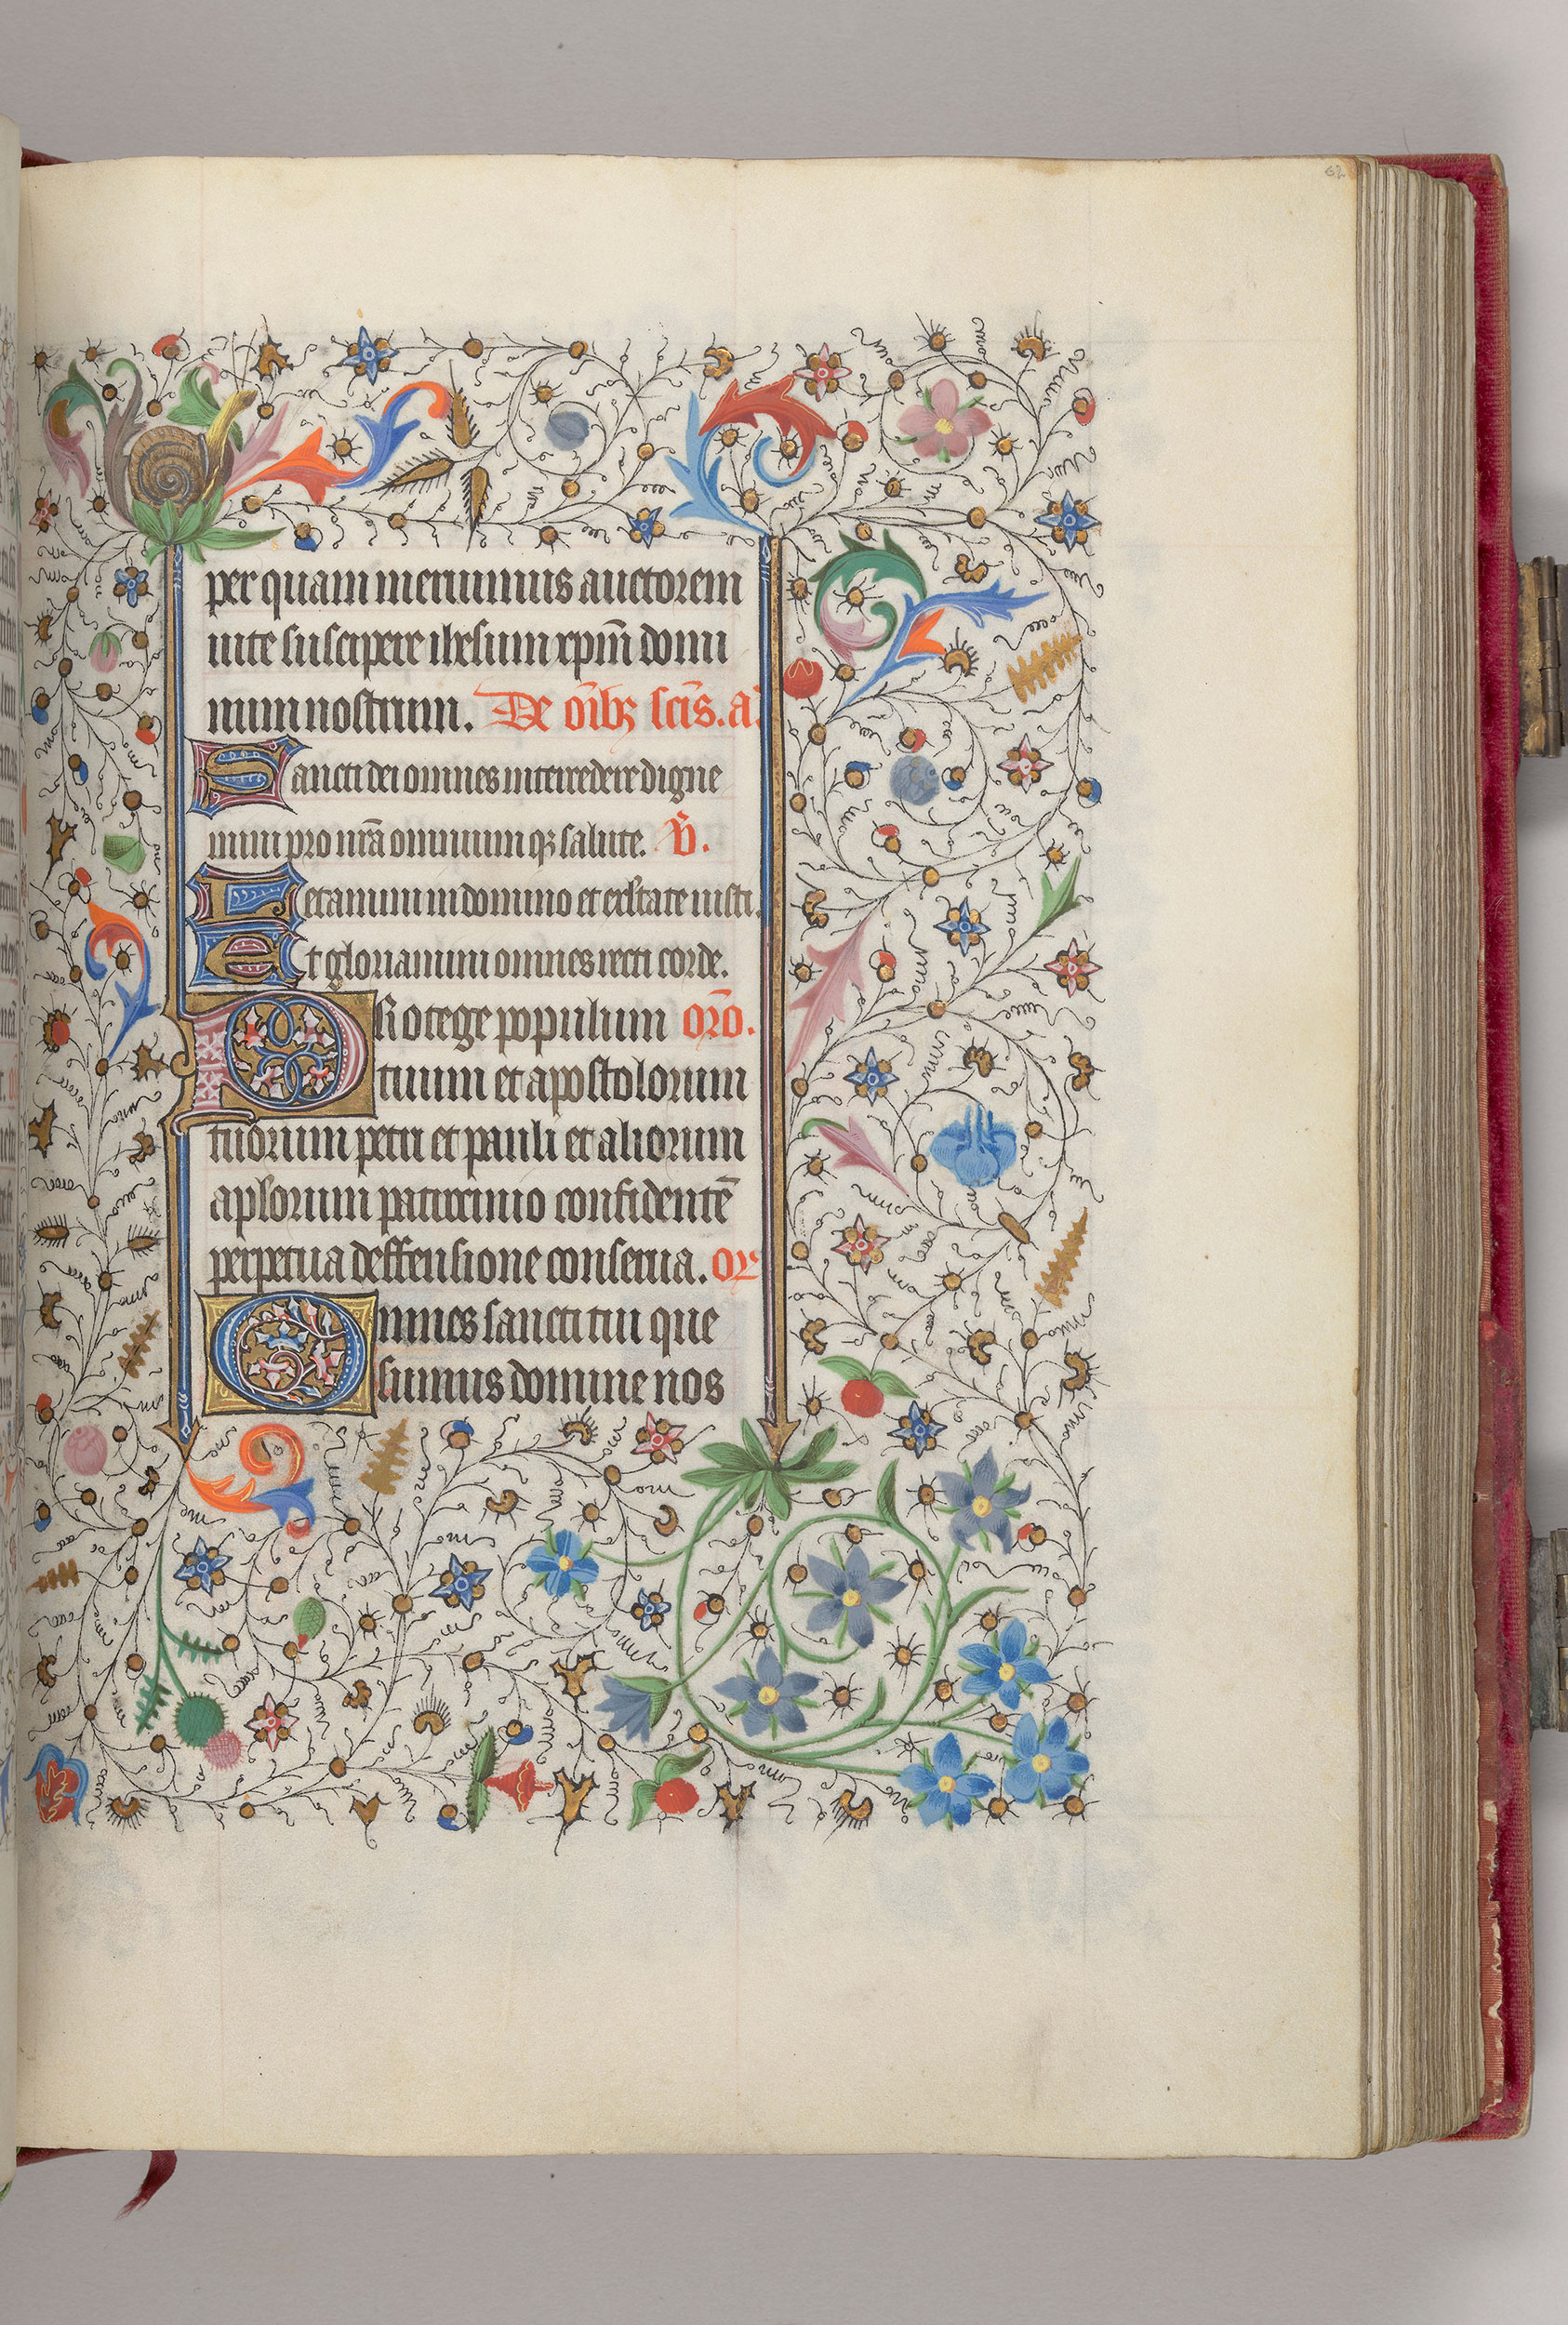 62
per quam meruimus auctorem
uite suscipere ihesum xpm̄ domi
num nostrum. De oīb sc̄is. a
Sancti dei omnes intercedere digne
mini pro nrā omnium qꝫ salute. v̄.
Letamini in domino et exl̄tate iusti.
Et gloriamini omnes recti corde.
PRotege populum or̄o.
tuum et apostolorum
tuorum petri et pauli et aliorum
apl̄orum patrocinio confidentē
perpetua deffensione conserua. or̄
Omnes sancti tui que
sumus domine nos